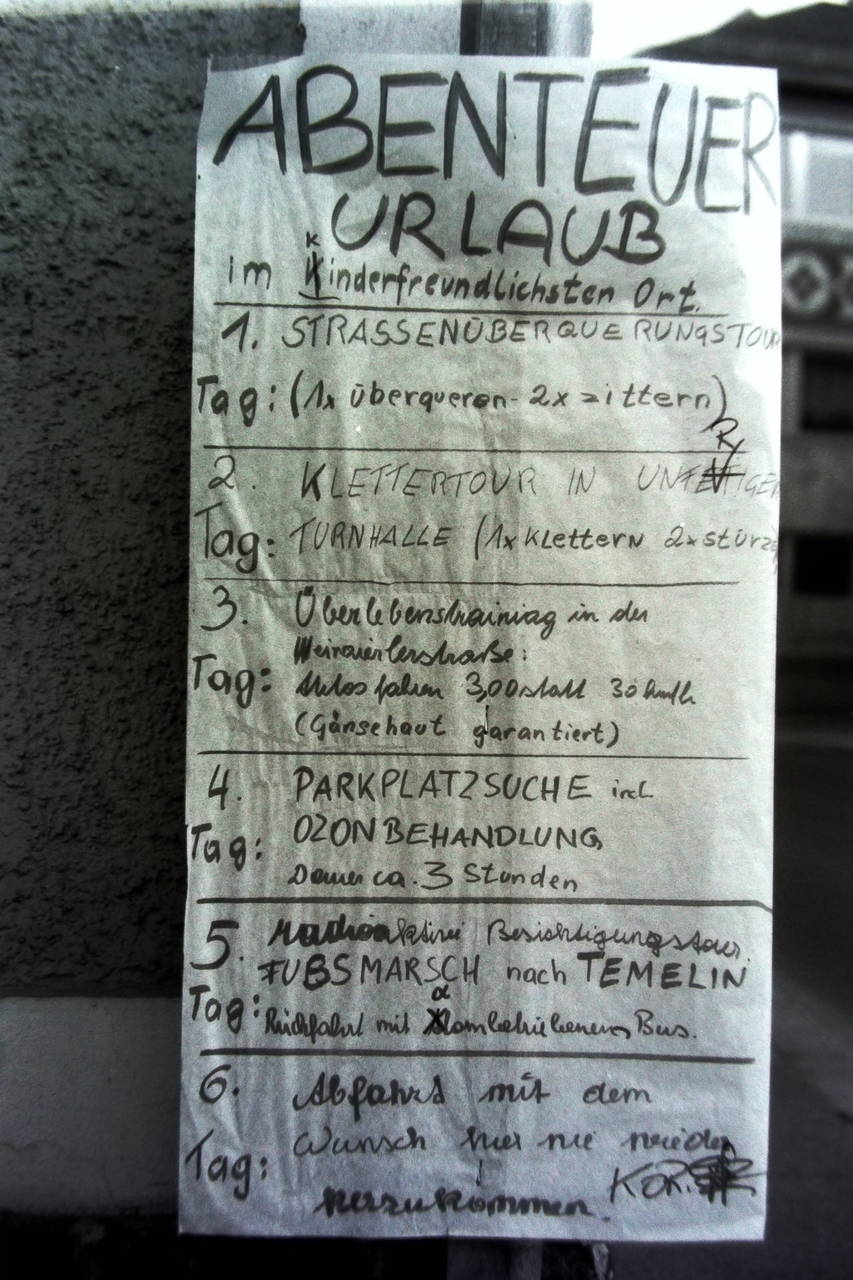 ABENTEUER
URLAUB
im Kinderfreundlichsten Ort.
1. STRASSENÜBERQUERUNGSTOUR
Tag: (1x überqueren - 2x zittern)
2. KLETTERTOUR IN UNFERTIGER
Tag: TURNHALLE (1x Klettern 2x stürze
3. Überlebenstraining in der
Tag:
Autos fahren 300 statt 30 km/h
(Gänsehaut garantiert)
4. PARKPLATZSUCHE incl.
Tag: OZONBEHANDLUNG
Dauer ca. 3 Stunden
5. Radioaktive Besichtigungstour
FUßSMARSCH nach TEMELIN
Tag: Rückfahrt mit Bus.
6. Abfahrt mit dem
Tag: Wunsch hier nie wieder
herzukommen.